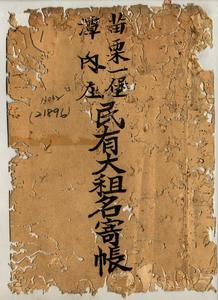 苗栗一堡
潭內庄
民有大租名寄帳
(21896)